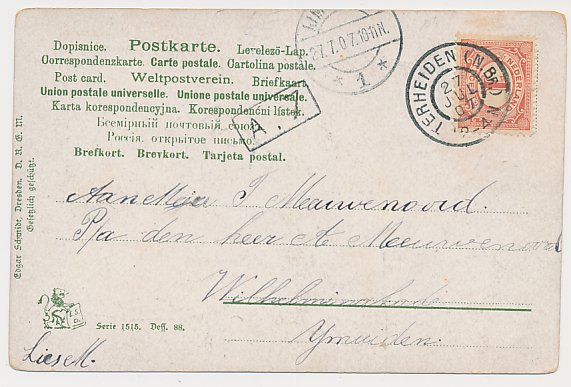 Dopisnice. Postkarte. Levelező-Lap.
Correspondenzkarte. Carte postale. Cartolina postale.
Post card. Weltpostverein. Briefkaart
Union postale universelle. Unione postale universale.
Karta korespondencyjna. Korespondenční lístek.
Всемірный почтовый союз
Россія. открытое письмо.
Brefkort. Brevkort. Tarjeta postal.
A. 1
27.7.07.10-11N.
* 1 *
TERHEIDEN (N.BR.)
27
JUL
07
NEDERLAND
1
Aan Mej T Meeuwenoord.
P/a den heer A Meeuwenoord
Wilhelminakade
Ymuiden.
Edgar Schmidt, Dresden. D. R. G. M.
Gesetzlich geschützt.
Serie 1515. Dess. 88.
Lies M.